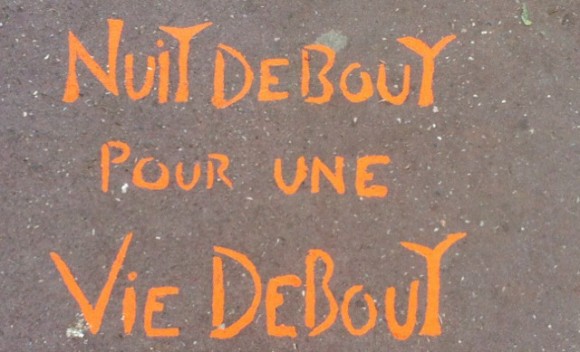 NUIT DEBOUT
POUR UNE
VIE DEBOUT